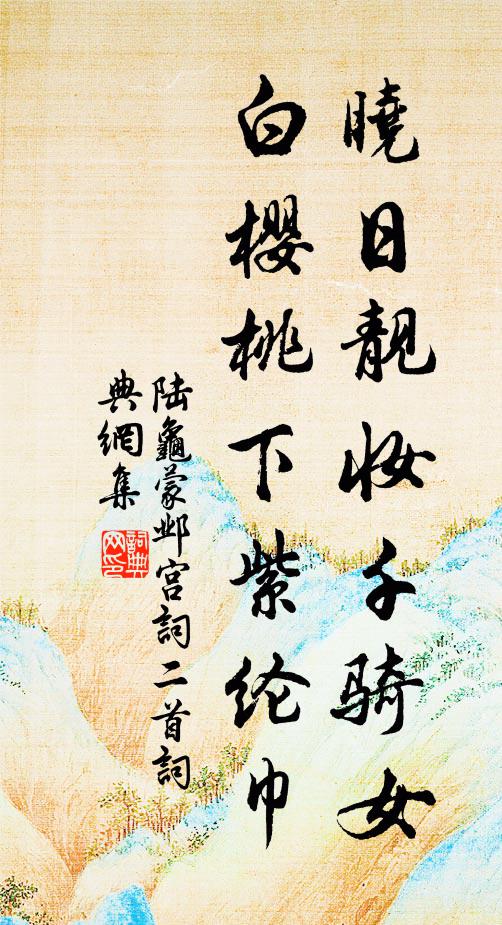 曉日靚妝千騎女
白櫻桃下紫纶巾
陆龜蒙邺宫詞二首詞
典網集
詞典网印